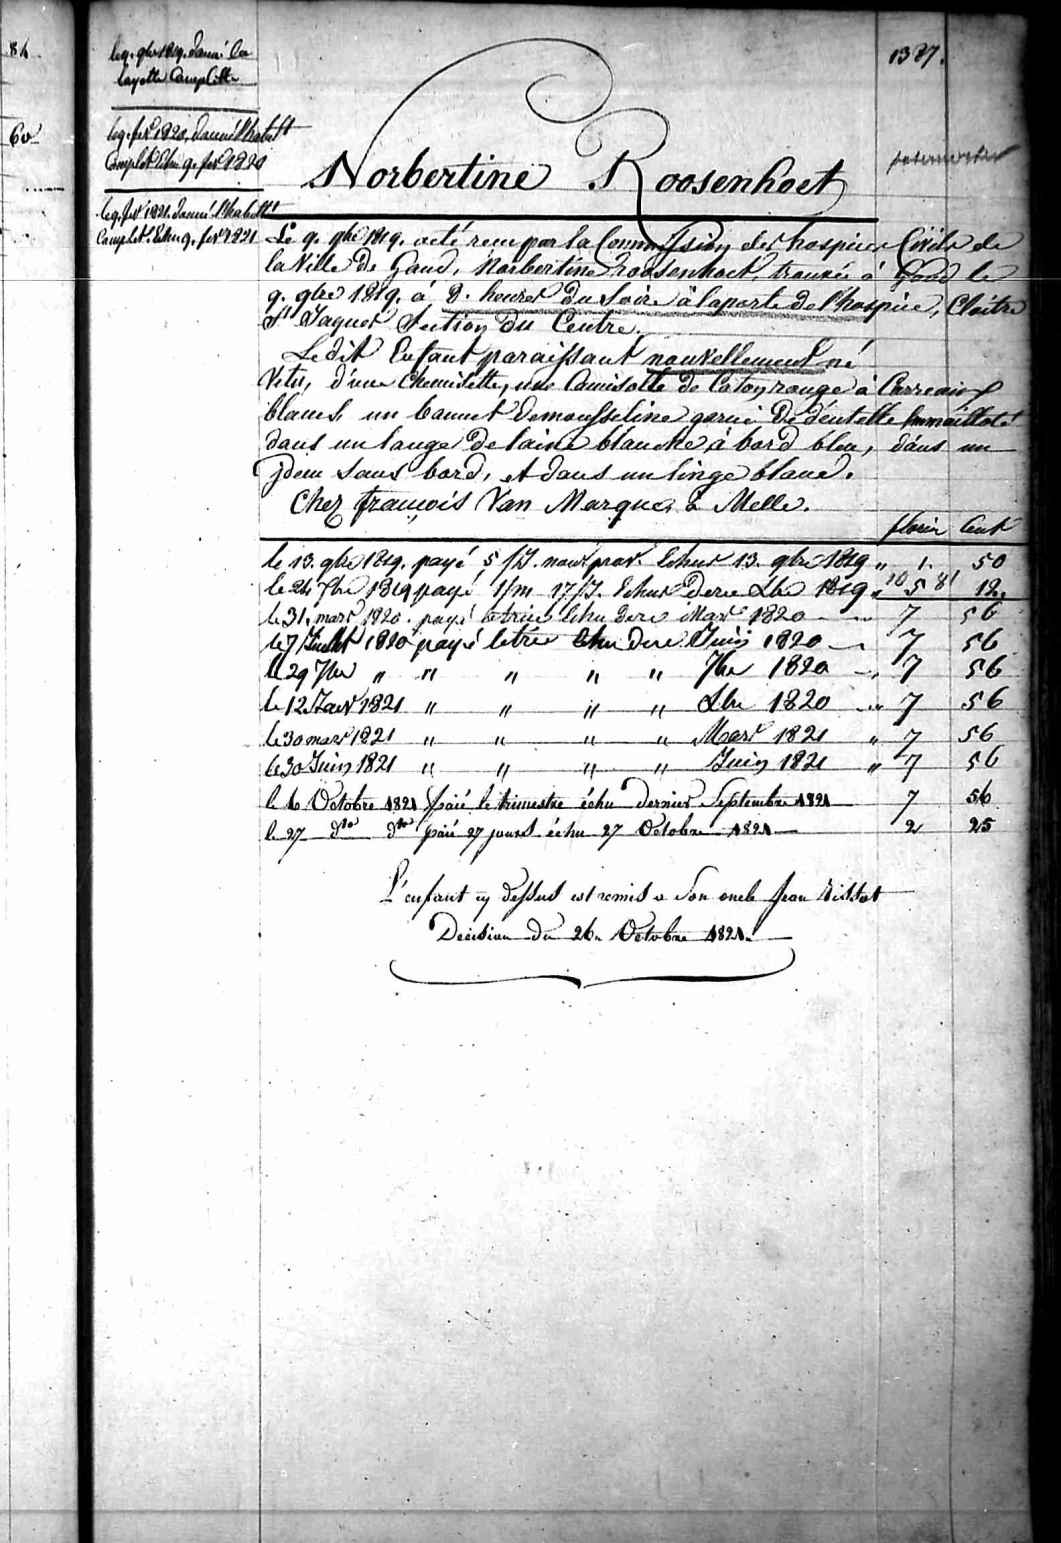 84
60
le 9. 9bre 1819. donné la
layette Complette
le 9. fevr 1820, donné l'habilt
Complet Echu 9. fevr 1820
le 9. fevr 1821. donné l'habilt
Complet. Echu 9. fevr 1821
1387.
Norbertine Roosenhoet
Le 9. 9bre 1819. a été reçu par la Commission des hospices Civils de
la Ville de Gand, Norbertine Roosenhoet, trouvée à Gand le
9. 9bre 1819. à 8. heures du Soire à la porte de l'hospice, Cloitre
St Jaques Section du Centre.
Ledit Enfant paraissant nouvellement né
Vetu, d'une Chemisette, une Camisolle de Coton rouge à Carreaux
blancs, un bonnet de mousseline garni de dentelle Emmaillotté
dans un lange de laine blanche à bord bleu, dans un
idem sans bord, et dans un linge blanc.
Chez françois Van Marque, à Melle.
florin Cent
le 13. 9bre 1819. payé 5/J. nouv prov. Echus 13. 9bre 1819 " 1. 50
le 24 1819 payé 1/m 17/J. Echus dere Xbre 1819 " 5 12
10 81
le 31. mars 1820. payé le trie Echu dere Mars 1820 7 56
le 7 Juillet 1820 payé le trie Echu dere Juin 1820 7 56
le 29 7bre " " " " " 7bre 1820 7 56
le 12 Janv 1821 " " " " Xbre 1820 7 56
le 30 mars 1821 " " " " Mars 1821 " 7 56
le 30 Juin 1821 " " " " Juin 1821 " 7 56
le 6 Octobre 1821 paié le trimestre échu dernier Septembre 1821 7 56
le 27 dto dto paié 27 jours échu 27 Octobre 1821 2 25
L'enfant cy dessus est remis a Son oncle Jean
Decision du 26. Octobre 1821.